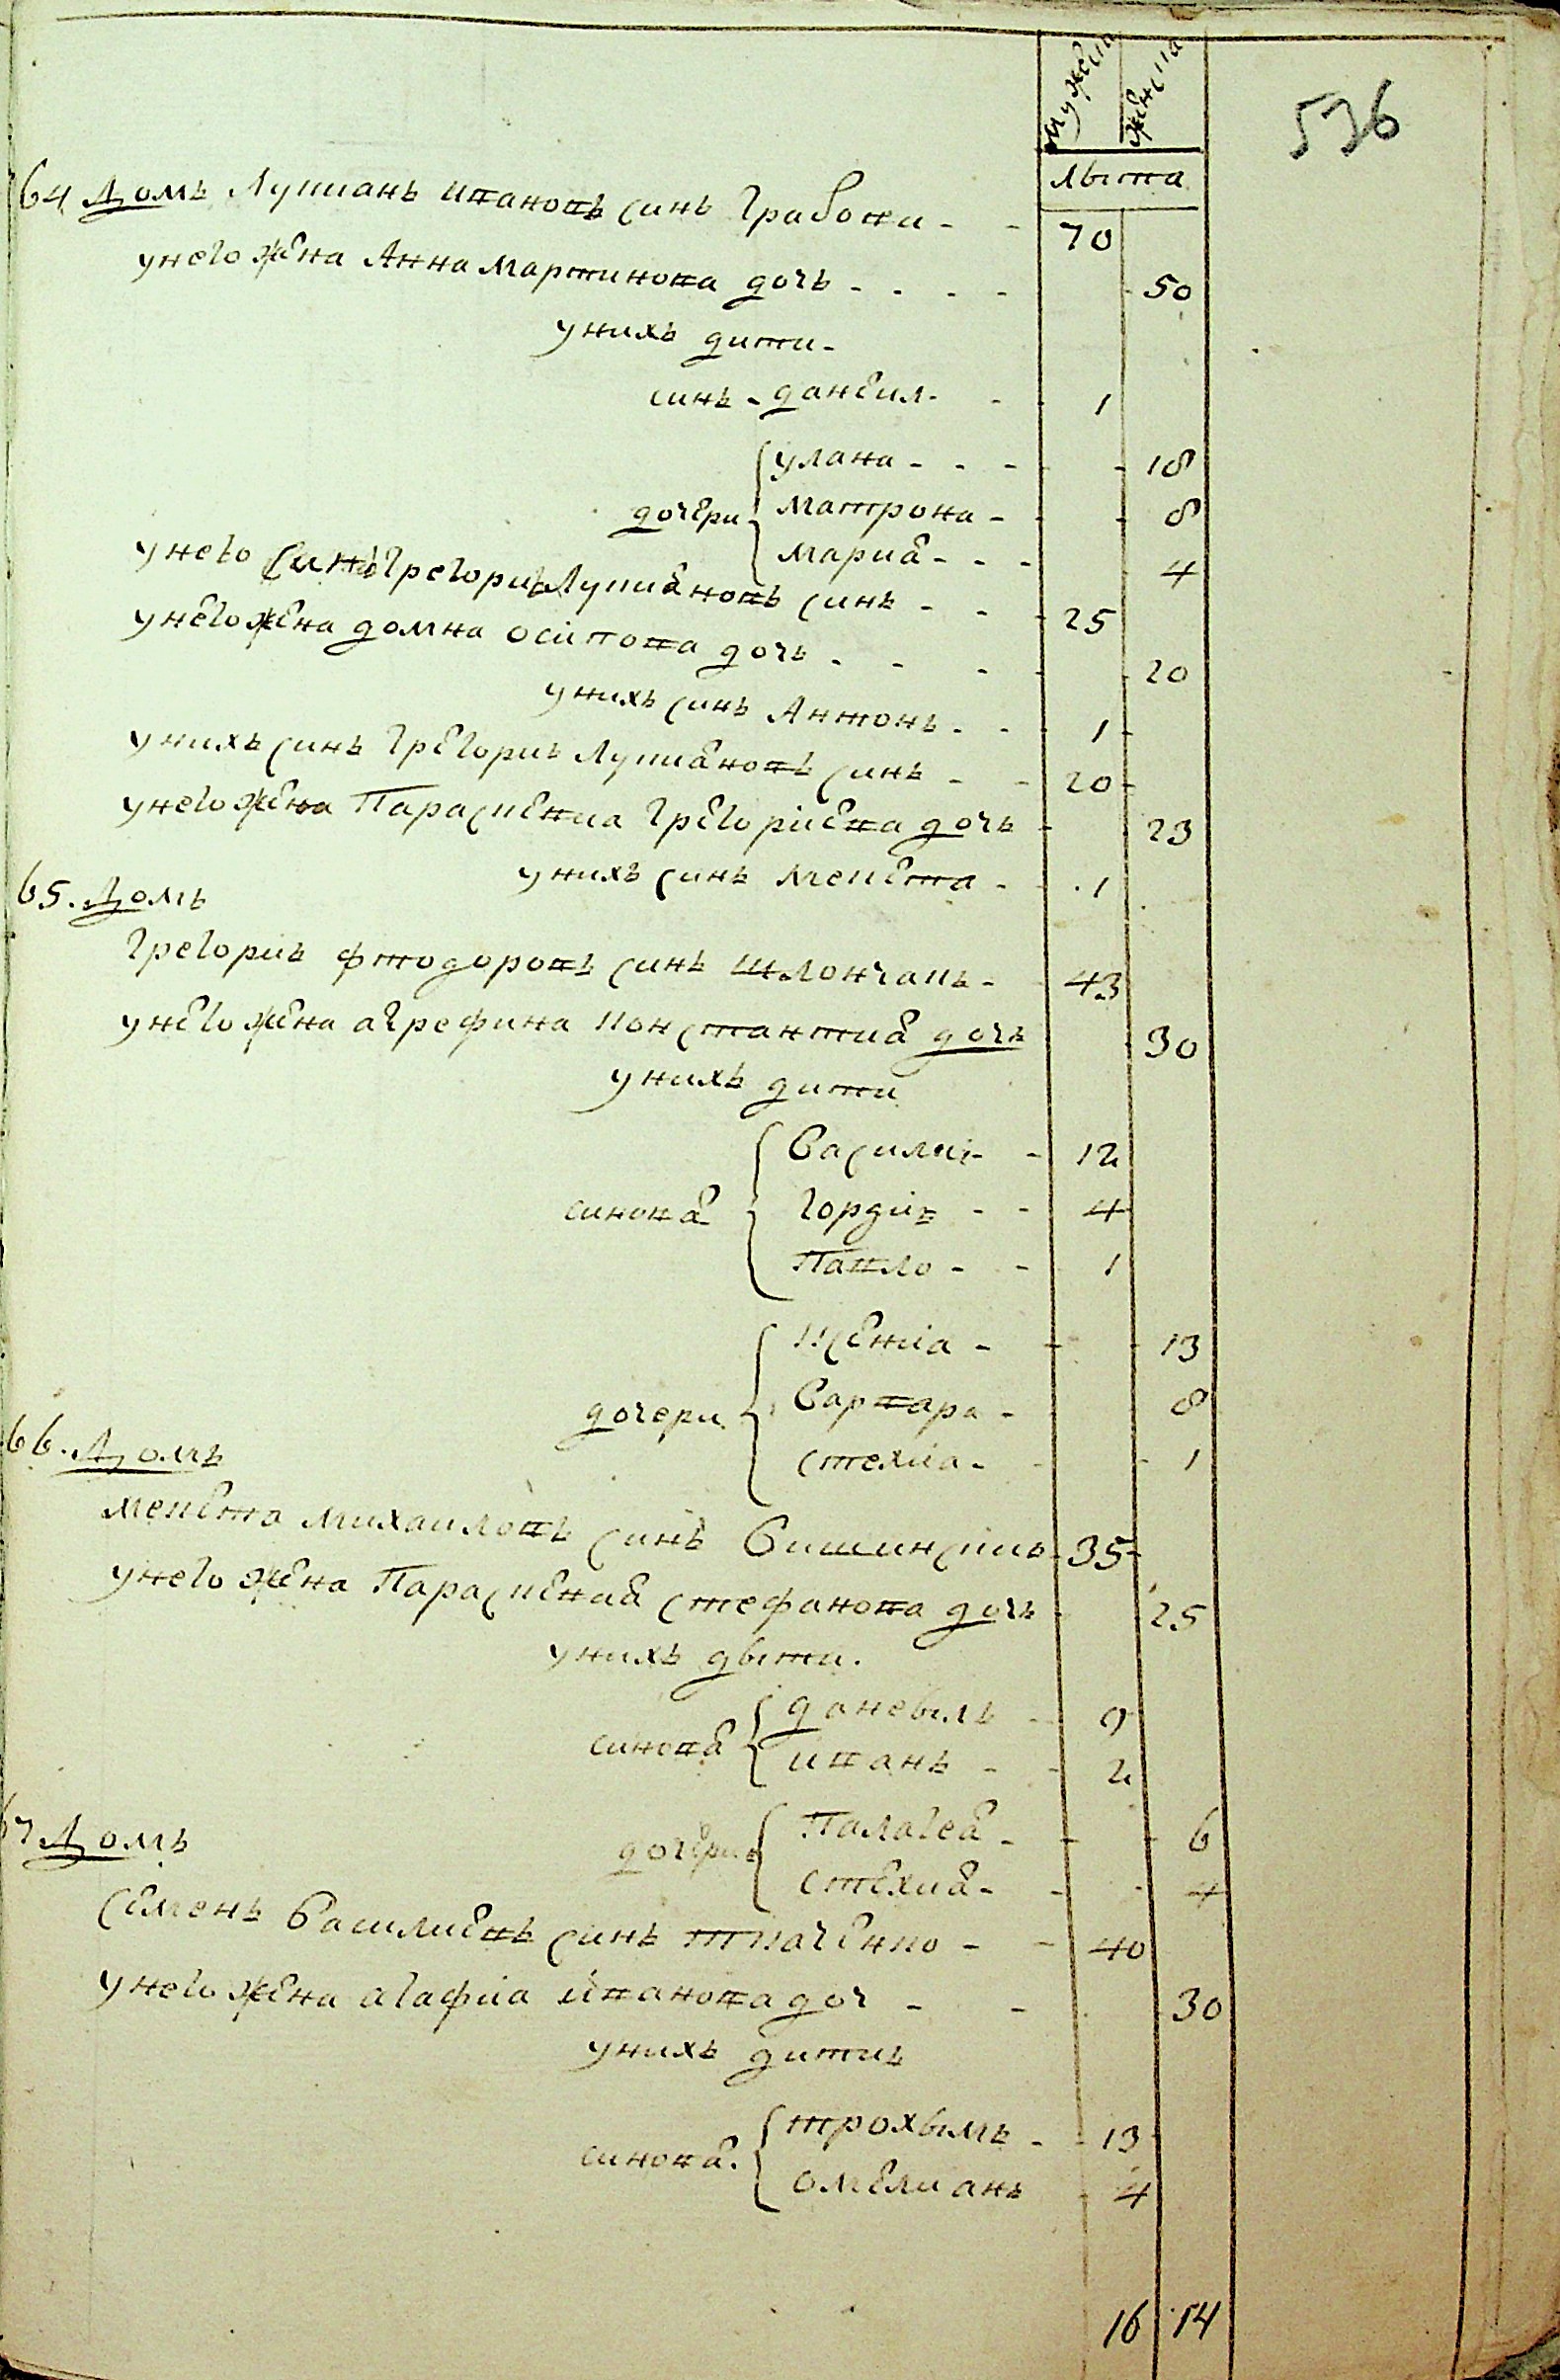 536
мужеска женска
лѣта
64 Домъ Лукианъ Ивановъ синъ Грабови - - 70
у него жена Анна Мартинова дочь - - - - 50
у нихъ дити -
синъ - Данеил - - 1
Улана - - - 18
дочери Матрона - - 8
Мариа - - - 4
у него синъ Грегорий Лукиановъ синъ - - - 25
у него жена Домна Осiпова дочь - - - 20
у нихъ синъ Антонъ - - 1
у нихъ синъ Грегорий Лукиановъ синъ - - 20
у него жена Параскевиа Грегорiева дочь - 23
у нихъ синъ Мекета - - 1
65. Домъ
Грегорий Фтодоровъ синъ Шлончакъ - 43
у него жена Агрефина Константиа дочь 30
у нихъ дити
Василий - - 12
синова Гордiй - - 4
Павло - - 1
Ксенiа - - 13
дочери Варвара - 8
Стехиа - - 1
66. Домъ
Мекета Михаиловъ синъ Вишинский - 35
у него жена Параскевиа Стефанова дочь - 25
у нихъ дѣти.
Данеѣлъ - 9
синова Иванъ - - 2
Палагеа - - - 6
дочери Стехиа - - - 4
67 Домъ
Семенъ Василиевъ синъ Ткаченко - - 40
у него жена Агафиа Ивановa доч - - 30
у нихъ дити
Трохѣмъ - - 13
синова. Омелианъ - 4
16 14